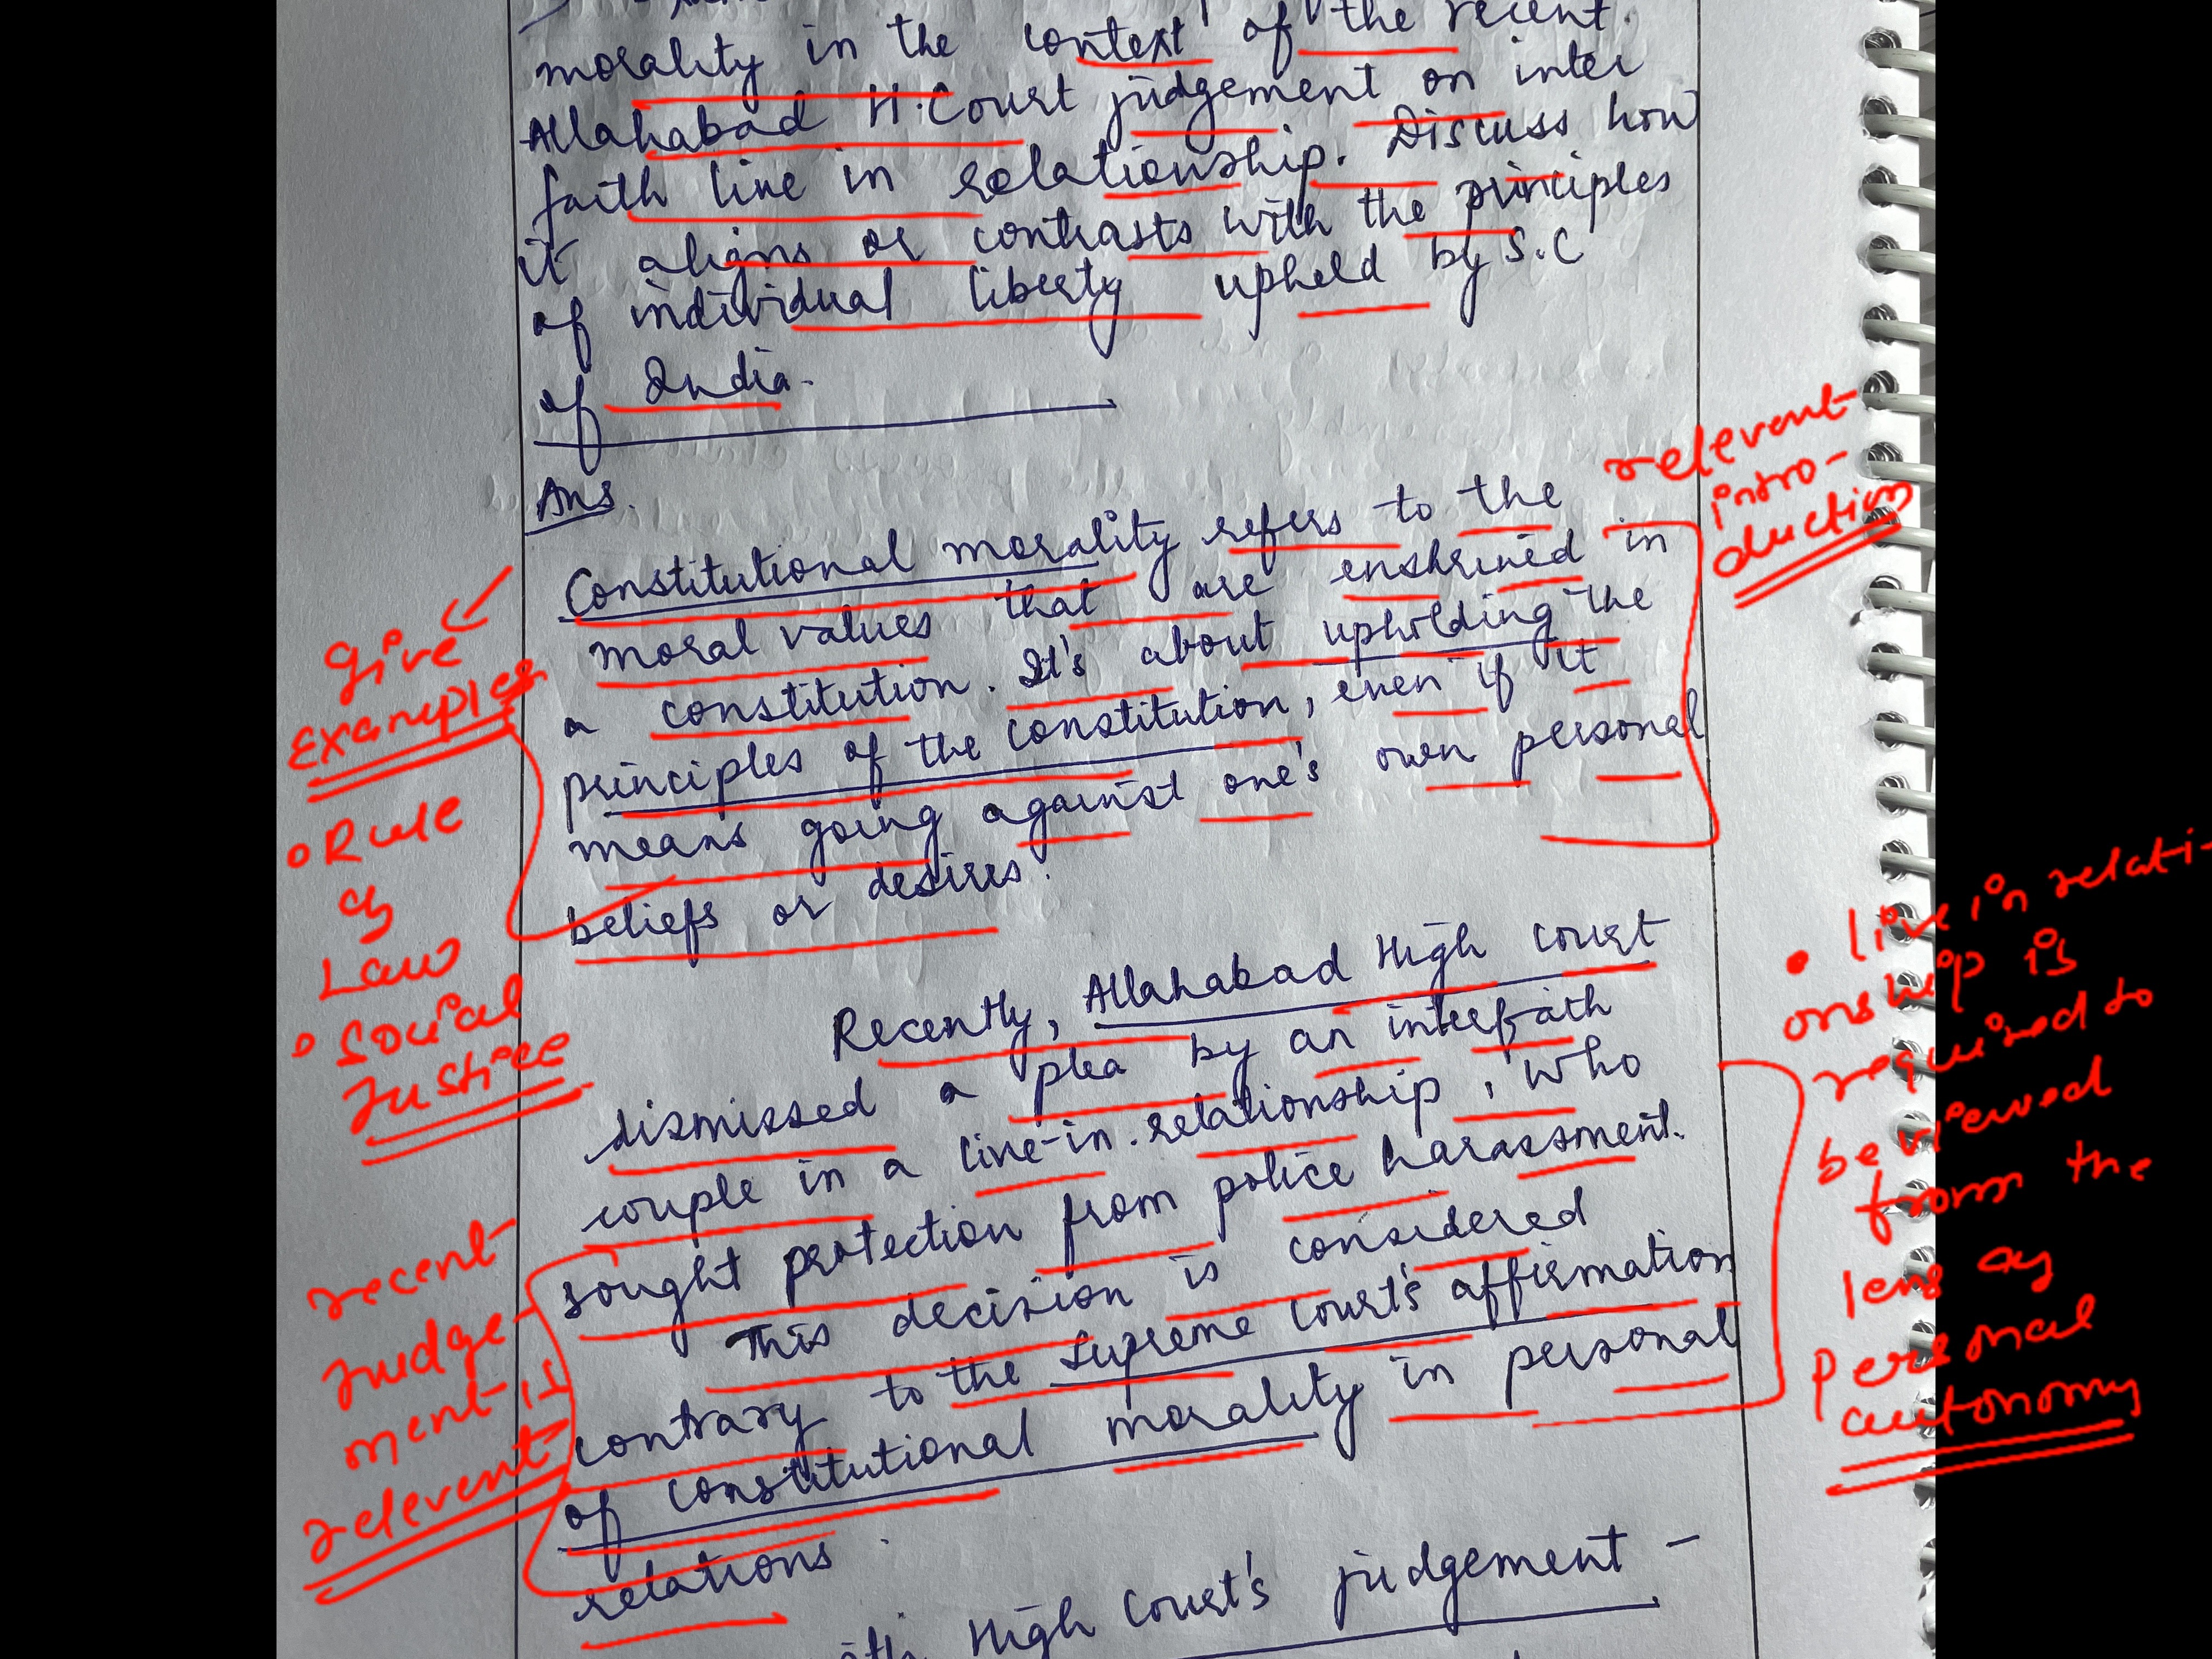 morality in the context of the recent
Allahabad H.Court judgement on inter
faith live in relationship. Discuss how
it aligns or contrasts with the principles
of individual liberty upheld by S.C
of India.
Ans.
relevent
intro-
duction
Constitutional morality refers to the
moral values that are enshrined in
a constitution. It's about upholding the
principles of the constitution, even if it
means going against one's own personal
beliefs or desires.
give
Examples
Rule
of
Law
Social
Justice
Recently, Allahabad High Court
dismissed a plea by an interfaith
couple in a live-in relationship, who
sought protection from police harassment.
This decision is considered
contrary to the Supreme Court's affirmation
of constitutional morality in personal
relations.
recent
Judge-
ment is
relevent
• live in relati-
onship is
required to
be viewed
from the
lens of
Personal
autonomy
High Court's judgement -